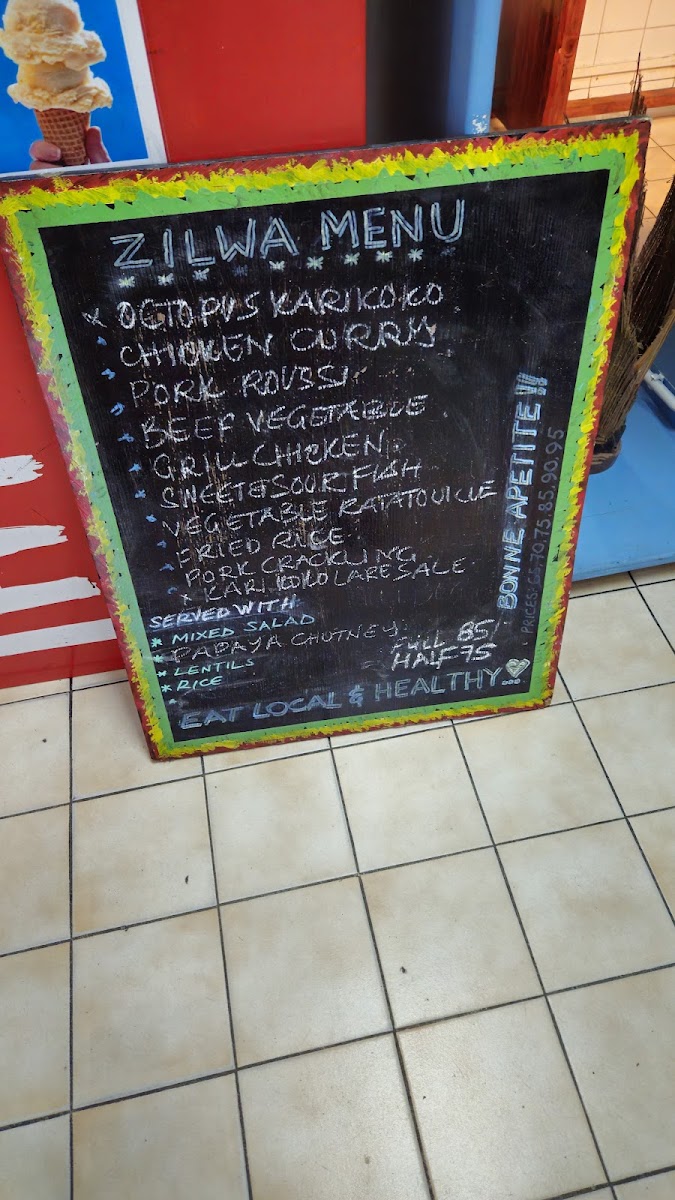 ZILWA MENU
x OCTOPUS KARIKOKO
CHICKEN CURRY
PORK ROUSSI
BEEF VEGETABLE
GRILL CHICKEN
SWEET & SOUR FISH
VEGETABLE RATATOUILLE
FRIED RICE
PORK CRACKLING
x KARI KOKO LARESALE
SERVED WITH
* MIXED SALAD
* PAPAYA CHUTNEY
* LENTILS
* RICE
FULL 85
HALF 75
EAT LOCAL & HEALTHY...
BONNE APETITE !!
PRICES: 65.70.75.85.90.95